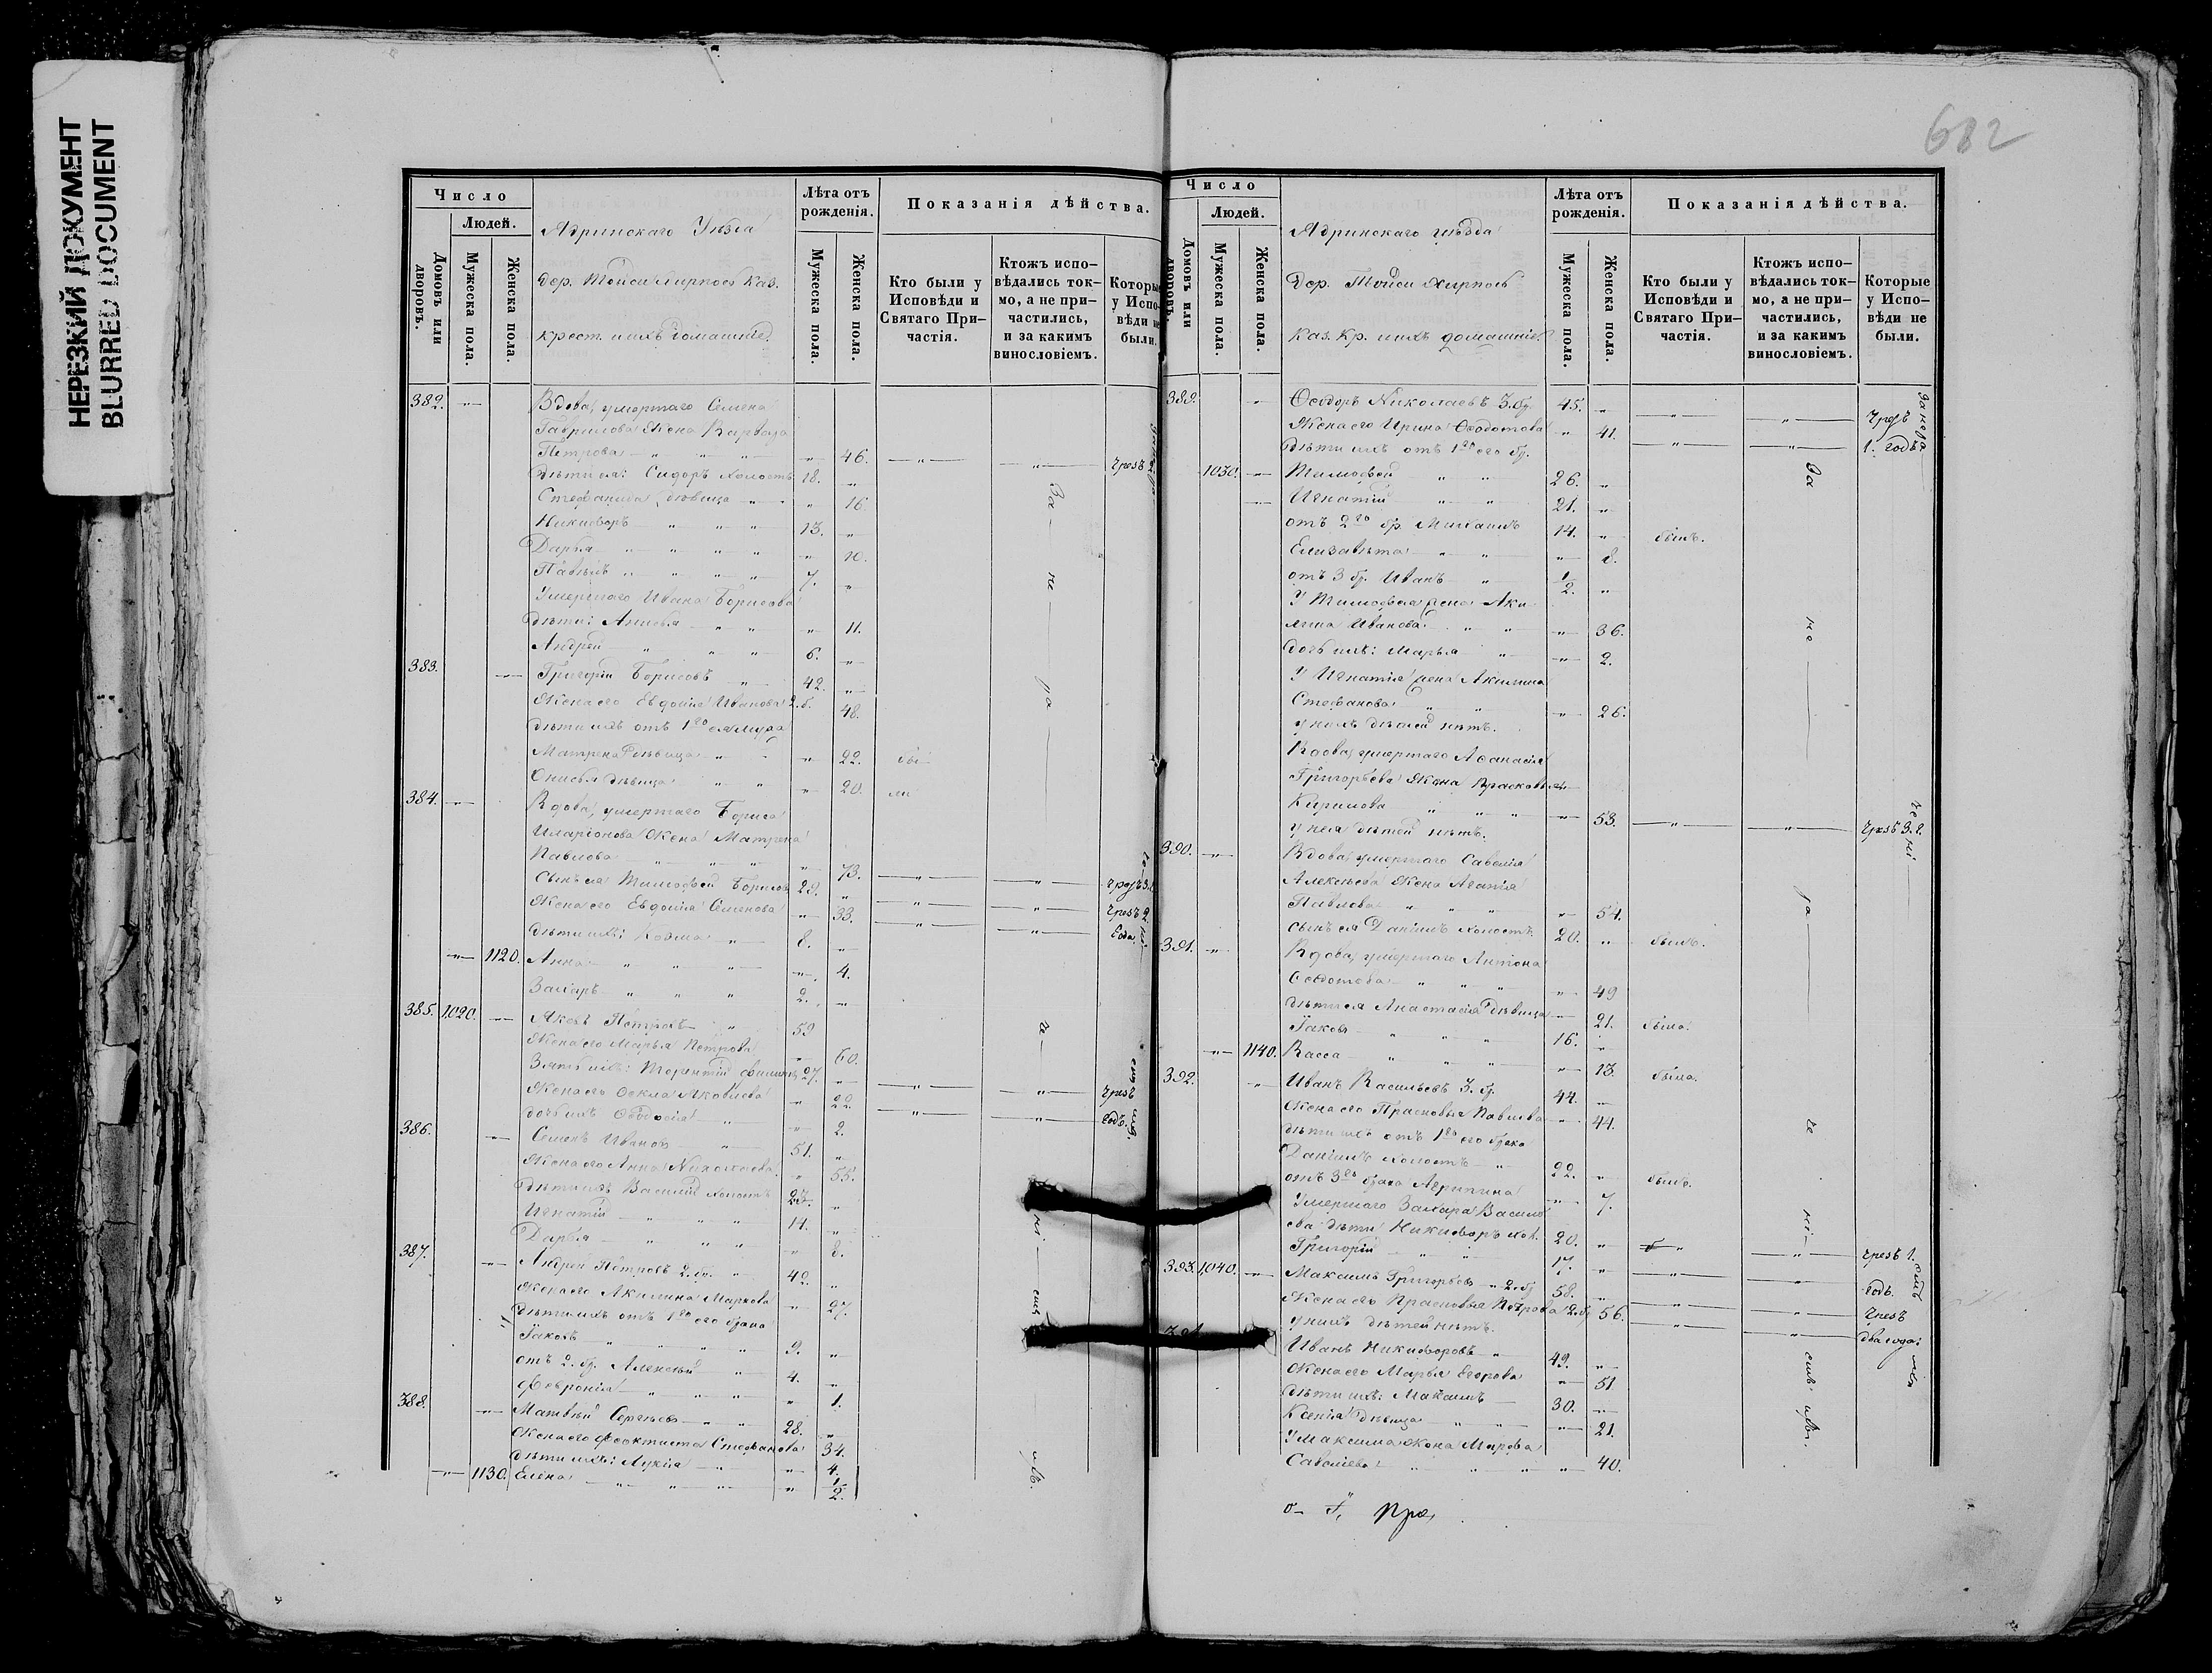 НЕРЕЗКИЙ ДОКУМЕНТ
BLURRED DOCUMENT
682
Число
Людей.
Домовъ или дворовъ.
Мужеска пола.
Женска пола.
Ядринскаго Уѣзда
дер.
крест. и ихъ домашніе.
Лѣта отъ рожденія.
Мужеска пола.
Женска пола.
Показанія дѣйства.
Кто были у Исповѣди и Святаго Причастія.
Ктожъ исповѣдались токмо, а не причастились, и за какимъ винословіемъ.
Которые у Исповѣди не были.
382. Вдова, умершаго Семена
Гаврилова Жена Варвара
Петрова 46. Чрезъ 2.
Дѣти ея: Сидоръ холостъ 18.
Стефанида дѣвица 16.
Никифоръ 13.
Дарья 10.
Павелъ 7.
Умершаго Ивана Борисова
дѣти: Анисья 11.
Андрей 6.
383. Григорій Борисовъ 42.
Жена его Евдокія Иванова 2.б. 48.
Дѣти ихъ отъ 1го ея мужа
Матрена дѣвица 22.
Анисья дѣвица 20.
384. Вдова, умершаго Бориса
Иларіонова Жена Матрена
Павлова 73.
Сынъ ея Тимофей Борисовъ 29.
Жена его Евдокія Семенова 33. Чрезъ 2.
Дѣти ихъ: Козма 8. года.
1120. Анна 4.
Захаръ 2.
385. 1020. Яковъ Петровъ 59
Жена его Марья Петрова 60.
Зять ихъ: Терентій 27.
Жена его Фекла Яковлева 22. Чрезъ
дочь ихъ Ѳеодосія 2. годъ.
386. Семенъ Ивановъ 51.
Жена его Анна Николаева 55.
Дѣти ихъ Василій холостъ 23.
Игнатій 14.
Дарья 8.
387. Андрей Петровъ 2. бр. 42.
Жена его Акилина Маркова 27.
Дѣти ихъ отъ 1го его брака
Іаковъ 9.
отъ 2. бр. Алексѣй 4.
Февронія 1.
388. Матвѣй Сергѣевъ 28.
Жена его Феоктиста Стефанова 34.
Дѣти ихъ: Лукія 4.
1130. Елена 1/2.
Число
Людей.
Домовъ или дворовъ.
Мужеска пола.
Женска пола.
Ядринскаго уѣзда
Дер.
Каз. кр. и ихъ домашніе.
Лѣта отъ рожденія.
Мужеска пола.
Женска пола.
Показанія дѣйства.
Кто были у Исповѣди и Святаго Причастія.
Ктожъ исповѣдались токмо, а не причастились, и за какимъ винословіемъ.
Которые у Исповѣди не были.
389. Ѳеодоръ Николаевъ 3. бр. 45. Чрезъ
Жена его Ирина Ѳеодотова 41. 1. годъ
Дѣти ихъ отъ 1го его бр.
1030. Тимофей 26.
Игнатій 21.
отъ 2го бр. Михаилъ 14. былъ.
Елизавета 8.
отъ 3 бр. Иванъ 1/2.
У Тимофея жена Аки-
лина Иванова 36.
дочь ихъ: Марья 2.
У Игнатія жена Акилина
Стефанова 26.
у нихъ дѣтей нѣтъ.
Вдова, умершаго Аѳанасія
Григорьева Жена Прасковья
Кирилова 53. Чрезъ 3. г.
у нея дѣтей нѣтъ.
390. Вдова, умершаго Савелія
Алексѣева Жена Агапія
Павлова 54.
сынъ ея Даніилъ холостъ 20. былъ.
391. Вдова, умершаго Антона
Ѳеодотова 49
Дѣти ея Анастасія дѣвица 21. была.
Іаковъ 16.
1140. Васса 13. была.
392. Иванъ Васильевъ 3. бр. 44.
Жена его Прасковья Павлова 44.
Дѣти ихъ отъ 1го его брака
Даніилъ холостъ 22. былъ.
отъ 3го брака Агрипина 7.
Умершаго Захара Василь-
ева дѣти Никифоръ хол. 20. Чрезъ 1.
Григорій 17. годъ.
393. 1040. Максимъ Григорьевъ 2. бр 58. Чрезъ
Жена его Прасковья Петрова 2. бр 56. два года.
у нихъ дѣтей нѣтъ.
Иванъ Никифоровъ 49.
Жена его Марья Егорова 51
Дѣти ихъ: Максимъ 30.
Ксенія дѣвица 21.
У Максима Жена Марфа
Савельева 40.